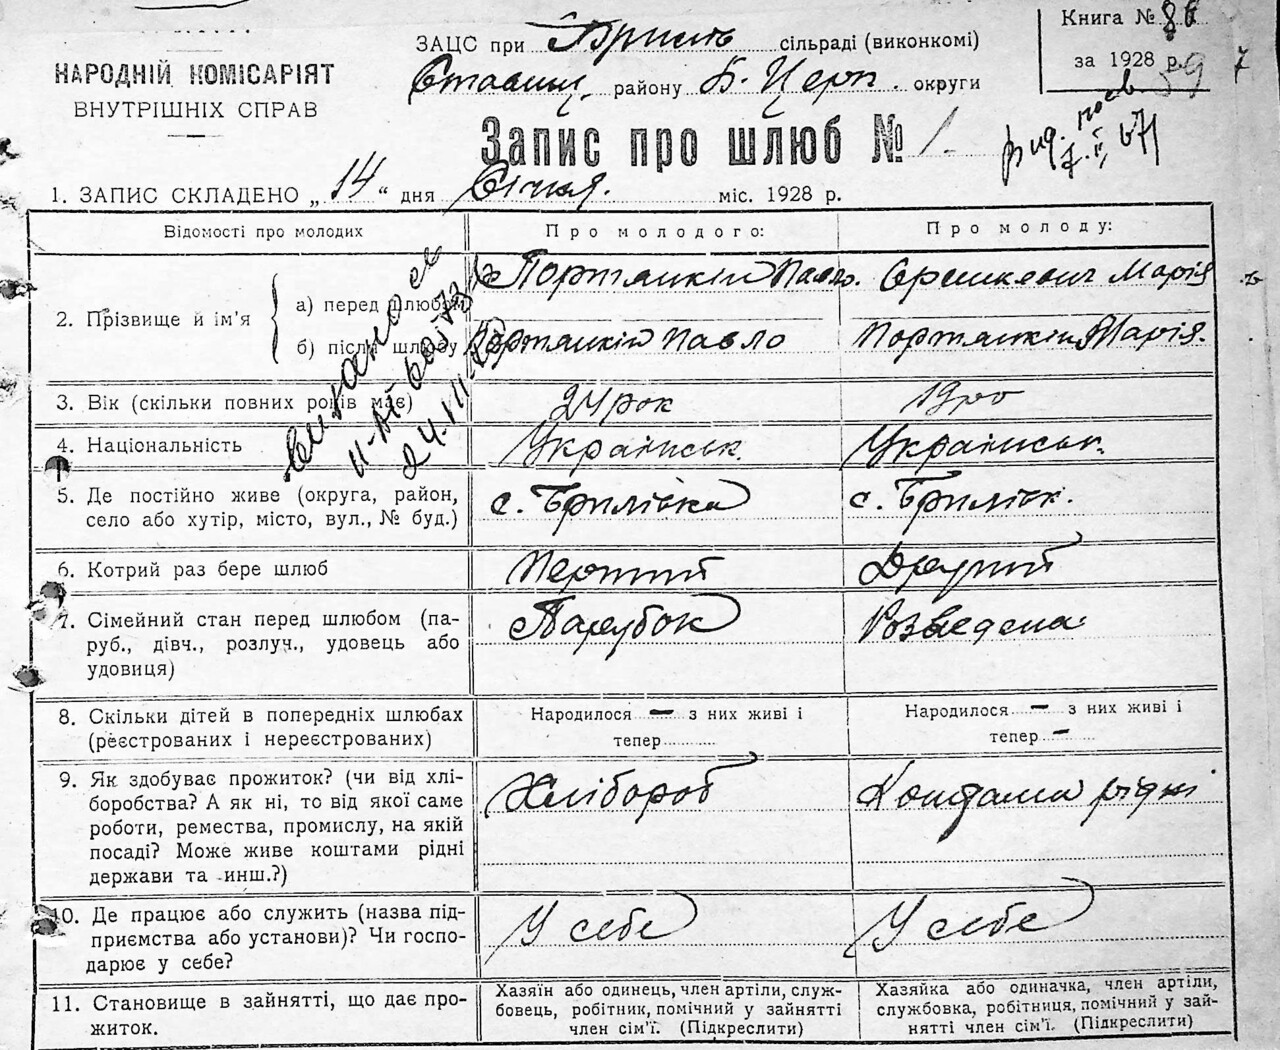 НАРОДНІЙ КОМІСАРІЯТ
ВНУТРІШНІХ СПРАВ
ЗАЦС при Брил сільраді (виконкомі)
Ставищ. району Б. Церк. округи
Книга № 86
за 1928 р.
Запис про шлюб № 1.
1. ЗАПИС СКЛАДЕНО „ 14 “ дня Січня. міс. 1928 р.
Відомості про молодих
Про молодого:
Про молоду:
2. Прізвище й ім'я
а) перед шлюбом
Портянкій Павло.
Марія
б) після шлюбу
Портянкій Павло
Портянкій Марія.
3. Вік (скільки повних років має)
24 рок
19 ро
4. Національність
Українськ.
Українськ.
5. Де постійно живе (округа, район,
село або хутір, місто, вул., № буд.)
с. Брилівка
с. Брилівк.
6. Котрий раз бере шлюб
Перший
Другий
7. Сімейний стан перед шлюбом (па-
руб., дівч., розлуч., удовець або
удовиця)
Парубок
Розведена
8. Скільки дітей в попередніх шлюбах
(реєстрованих і нереєстрованих)
Народилося — з них живі і
тепер
Народилося — з них живі і
тепер —
9. Як здобуває прожиток? (чи від хлі-
боробства? А як ні, то від якої саме
роботи, ремества, промислу, на якій
посаді? Може живе коштами рідні
держави та инш.?)
Хлібороб
Коштами рідні
10. Де працює або служить (назва під-
приємства або установи)? Чи госпо-
дарює у себе?
У себе
У себе
11. Становище в зайнятті, що дає про-
житок.
Хазяїн або одинець, член артіли, служ-
бовець, робітник, помічний у зайнятті
член сім'ї. (Підкреслити)
Хазяйка або одиначка, член артіли,
службовка, робітниця, помічний у зай-
нятті член сім'ї. (Підкреслити)